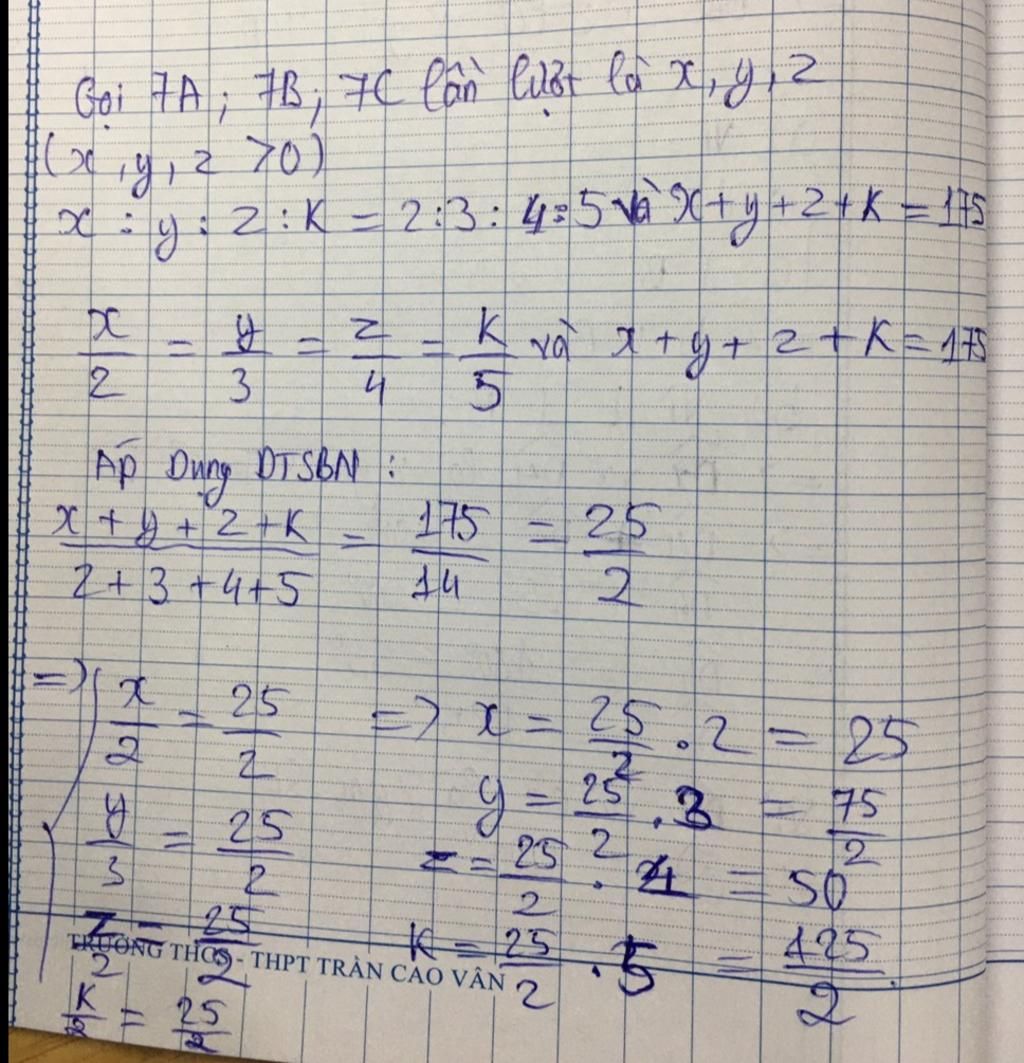 Gọi 7A; 7B; 7C lần lượt là x, y, z
(x, y, z >0)
x : y : z : K = 2:3: 4:5 và x+y+z+K = 175
x/2 = y/3 = z/4 = K/5 và x+y+z+K = 175
Áp Dụng DTSBN :
x+y+z+K / 2+3+4+5 = 175/14 = 25/2
=> { x/2 = 25/2 => x = 25/2 . 2 = 25
y/3 = 25/2 y = 25/2 . 3 = 75/2
z/2 = 25/2 z = 25/2 . 4 = 50
K/2 = 25/2 K = 25/2 . 5 = 125/2
TRƯỜNG THCS - THPT TRẦN CAO VÂN